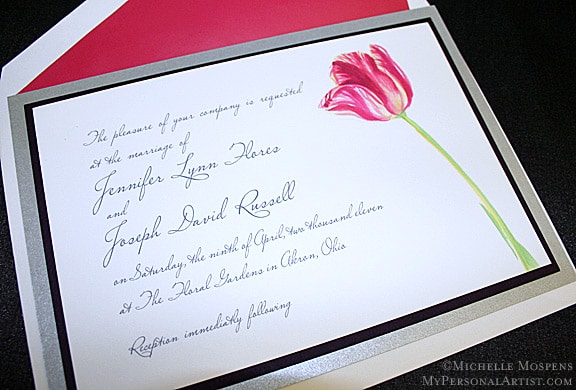 The pleasure of your company is requested
at the marriage of
Jennifer Lynn Flores
and
Joseph David Russell
on Saturday, the ninth of April, two thousand eleven
at The Floral Gardens in Akron, Ohio
Reception immediately following
©Michelle Mospens
MyPersonalArtist.com